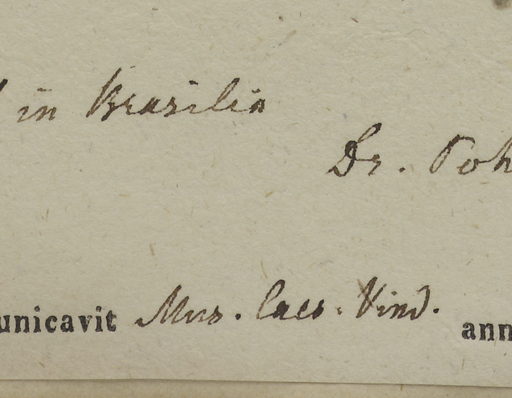 in Brasilia
Dr. Poh
unicavit Mus. Caes. Vind. ann